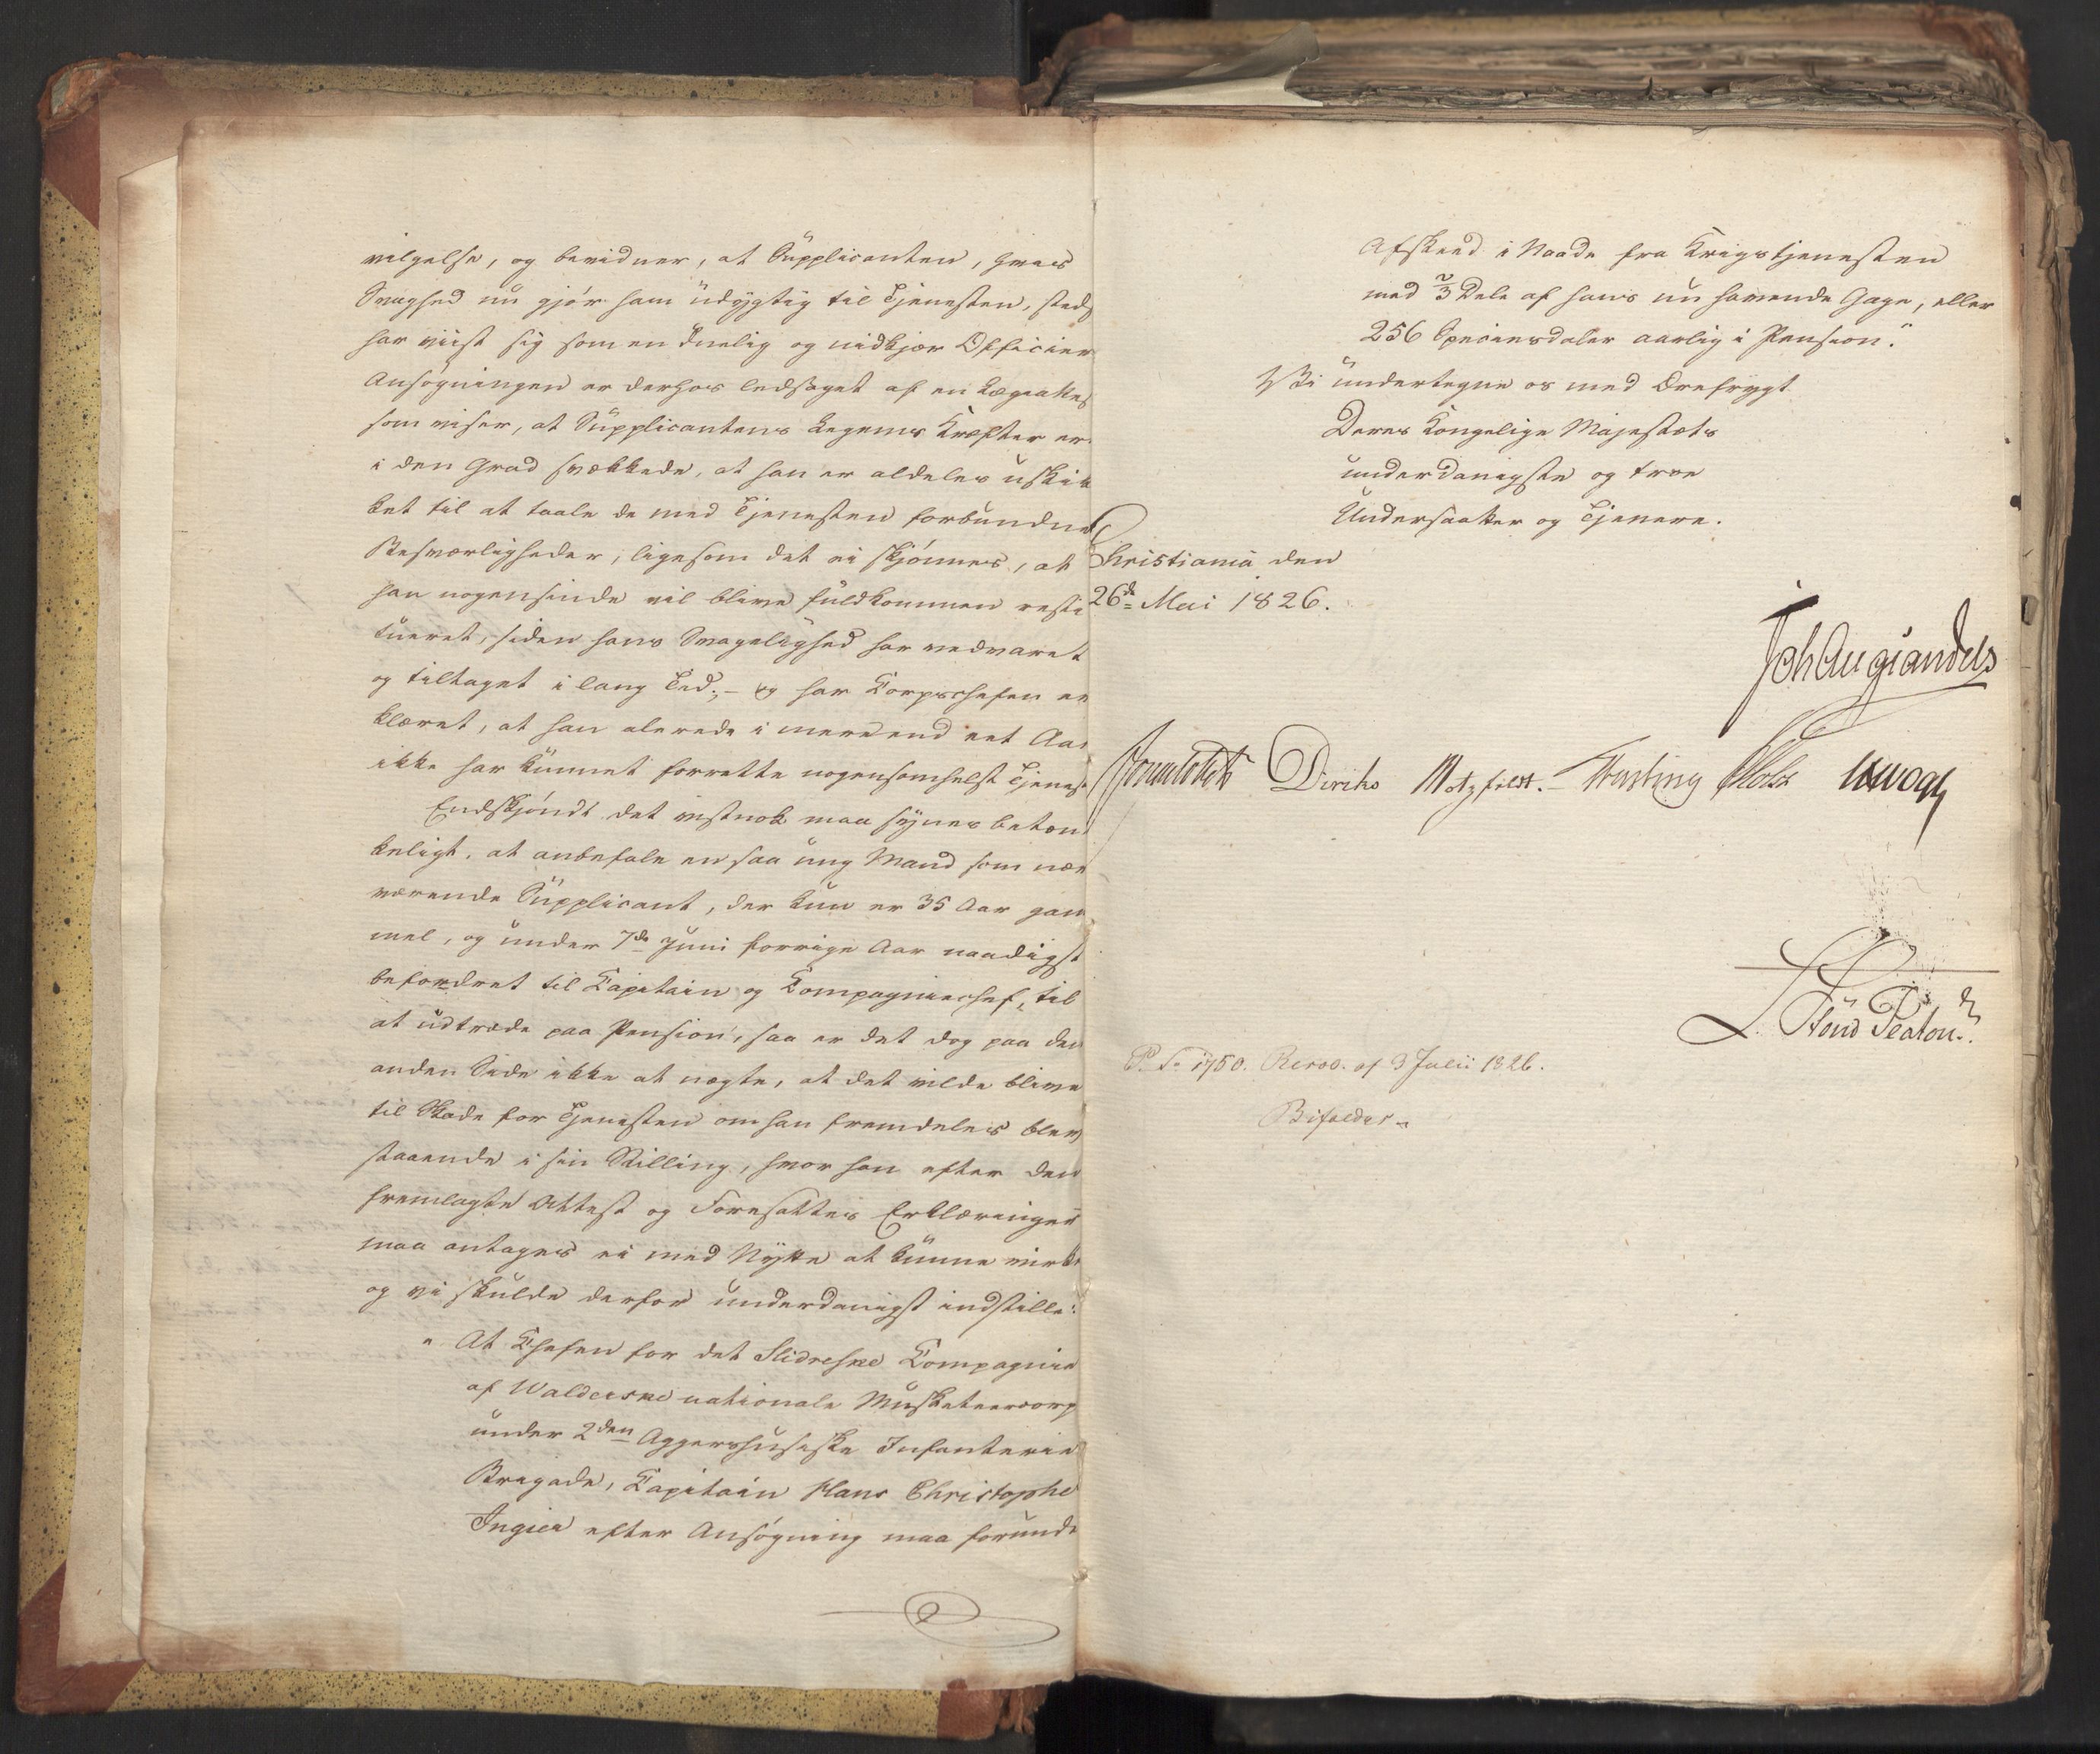 vilgelse, og bevidner, at Supplicanten, hvis
Svaghed nu gjør ham udygtig til Tjenesten, steds
har viist sig som en duelig og nidkjær Officier
Ansøgningen er derhos ledsaget af en Lægeattes
som viser, at Supplicantens Legems Kræfter er
i den Grad svækkede, at han er aldeles uskik
ket til at taale de med Tjenesten forbundne
Besværligheder, ligesom det ei skjønnes, at
han nogensinde vil blive fuldkommen resti
tueret, siden hans Svagelighed har vedvaret
og tiltaget i lang Tid; – og har Corpschefen er
klæret, at han alerede i mere end eet Aar
ikke har kunnet forrette nogensomhelst Tjenest
Endskjøndt det vistnok maa synes betæn
keligt, at anbefale en saa ung Mand som nær
værende Supplicant, der kun er 35 Aar gam
mel, og under 7de Juni forrige Aar naadigst
befordret til Capitain og Compagniechef, til
at udtræde paa Pension, saa er det dog paa den
anden Side ikke at negte, at det vilde blive
til Skade for Tjenesten om han fremdeles blev
staaende i sin Stilling, hvor han efter den
fremlagte Attest og Foresattes Erklæringer
maa antages ei med Nytte at kunne virke
og vi skulde derfor underdanigst indstille:
" At Chefen for det Slidreske Compagnie
af Walderske nationale Musketeercorps
under 2den Aggershusiske Infanterie
Brigade, Capitain Hans Christopher
Ingier efter Ansøgning maa forunde
Afskeed i Naade fra Krigstjenesten
med 2/3 Dele af hans nu havende Gage, eller
256 Speciesdaler aarlig i Pension."
Vi undertegne os med Ærefrygt
Deres Kongelige Majestæts
underdanigste og troe
Undersaatter og Tjenere.
Christiania den
26de Mai 1826.
Joh Aug Sandels
Sommerfeldt Diriks Motzfeldt. Fasting Holst
L. Stoud Platou
No 1750. Resol. af 3 Julii 1826.
Bifaldes